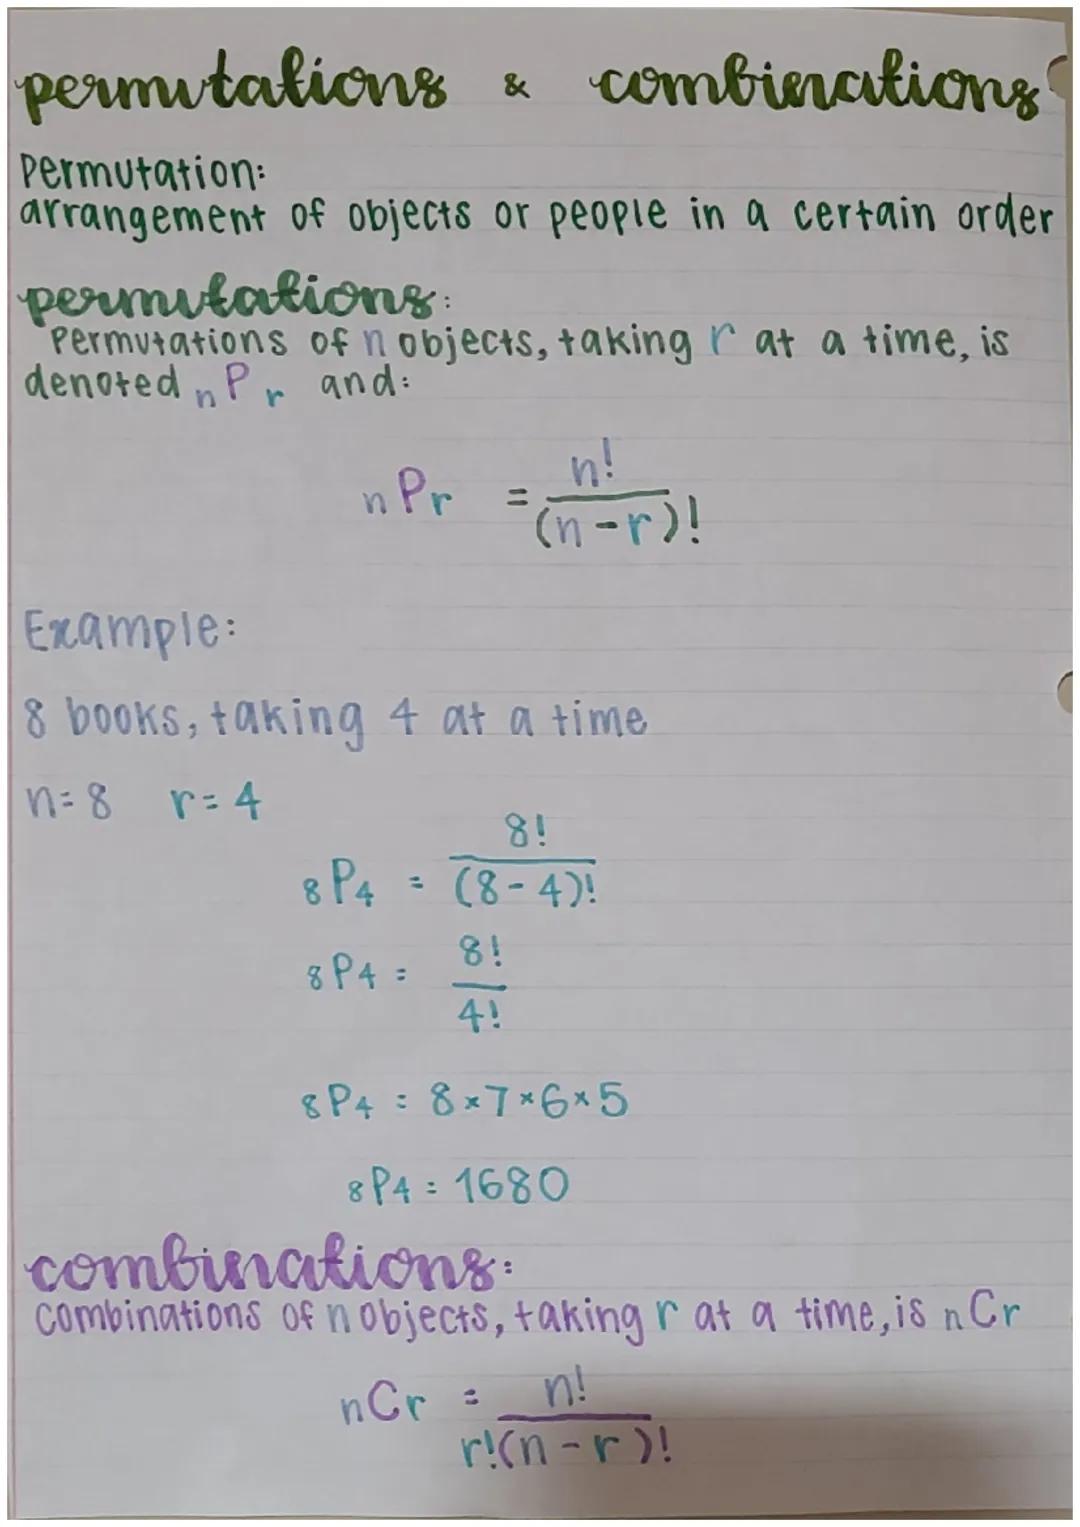 permutations & combinations
Permutation:
arrangement of objects or people in a certain order
permutations:
Permutations of n objects, taking r at a time, is
denoted nPr and:
nPr = n!/(n-r)!
Example:
8 books, taking 4 at a time
n=8 r=4
8P4 = 8!/(8-4)!
8P4 = 8!/4!
8P4 = 8×7×6×5
8P4 = 1680
combinations:
combinations of n objects, taking r at a time, is nCr
nCr = n!/r!(n-r)!